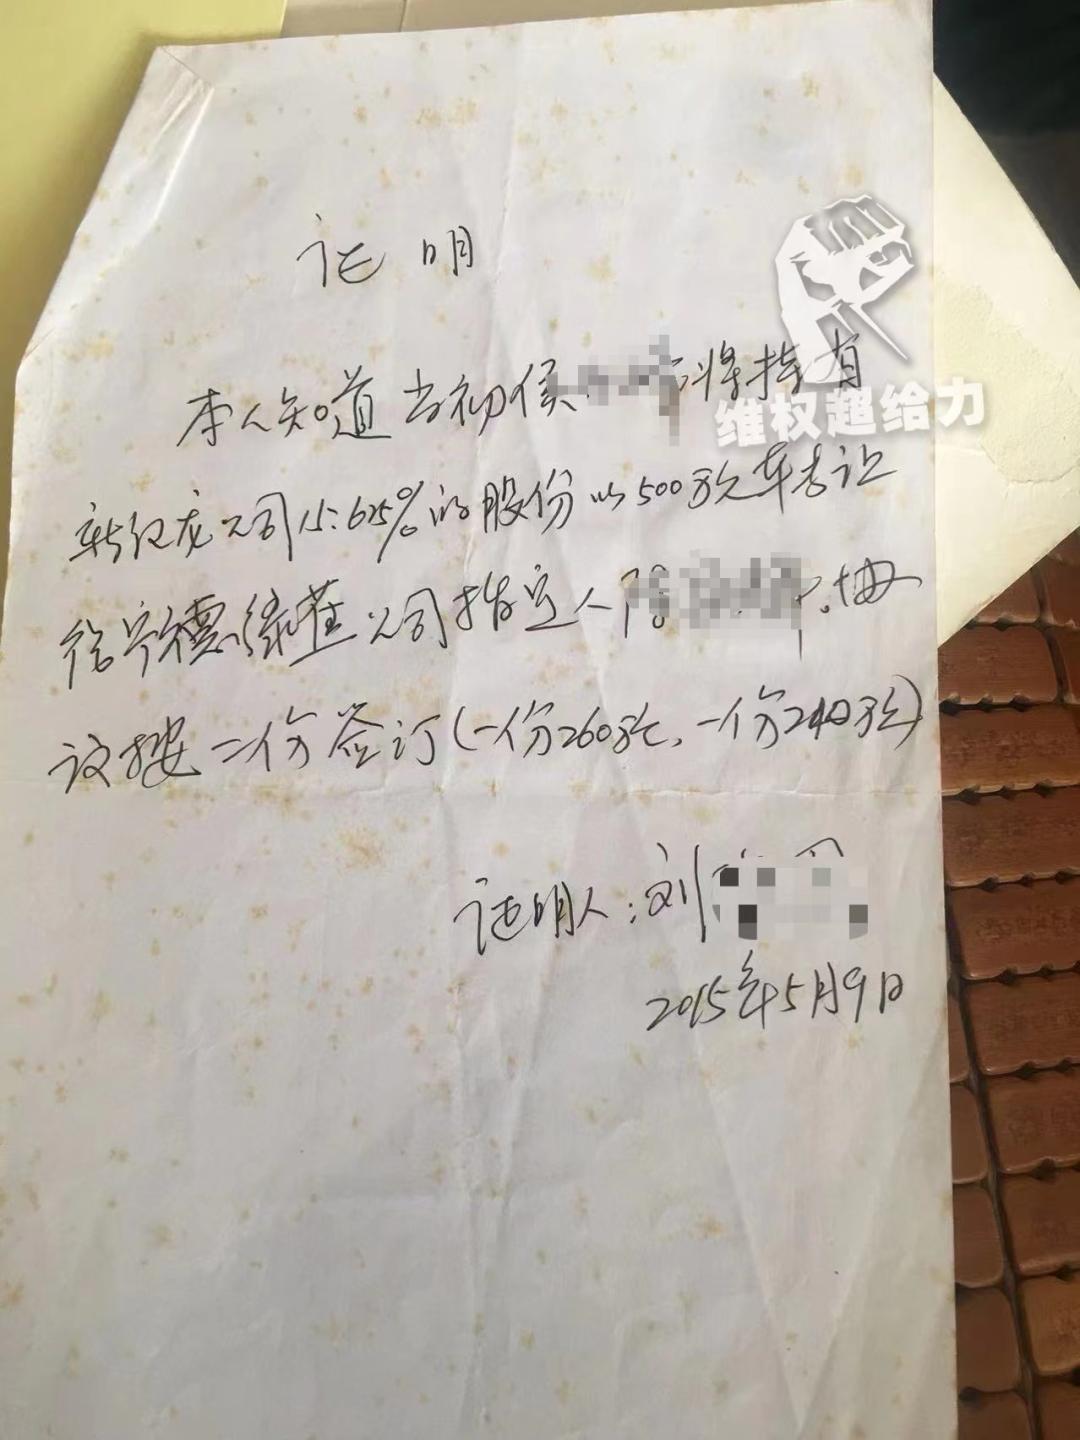 证明
本人知道当初侯 将持有
新红龙公司15.625%的股份以500万元转让
给宁德绿 公司指定人陈 协
议按二份签订(一份260万元,一份240万元)
证明人:刘
2015年5月9日
维权超给力